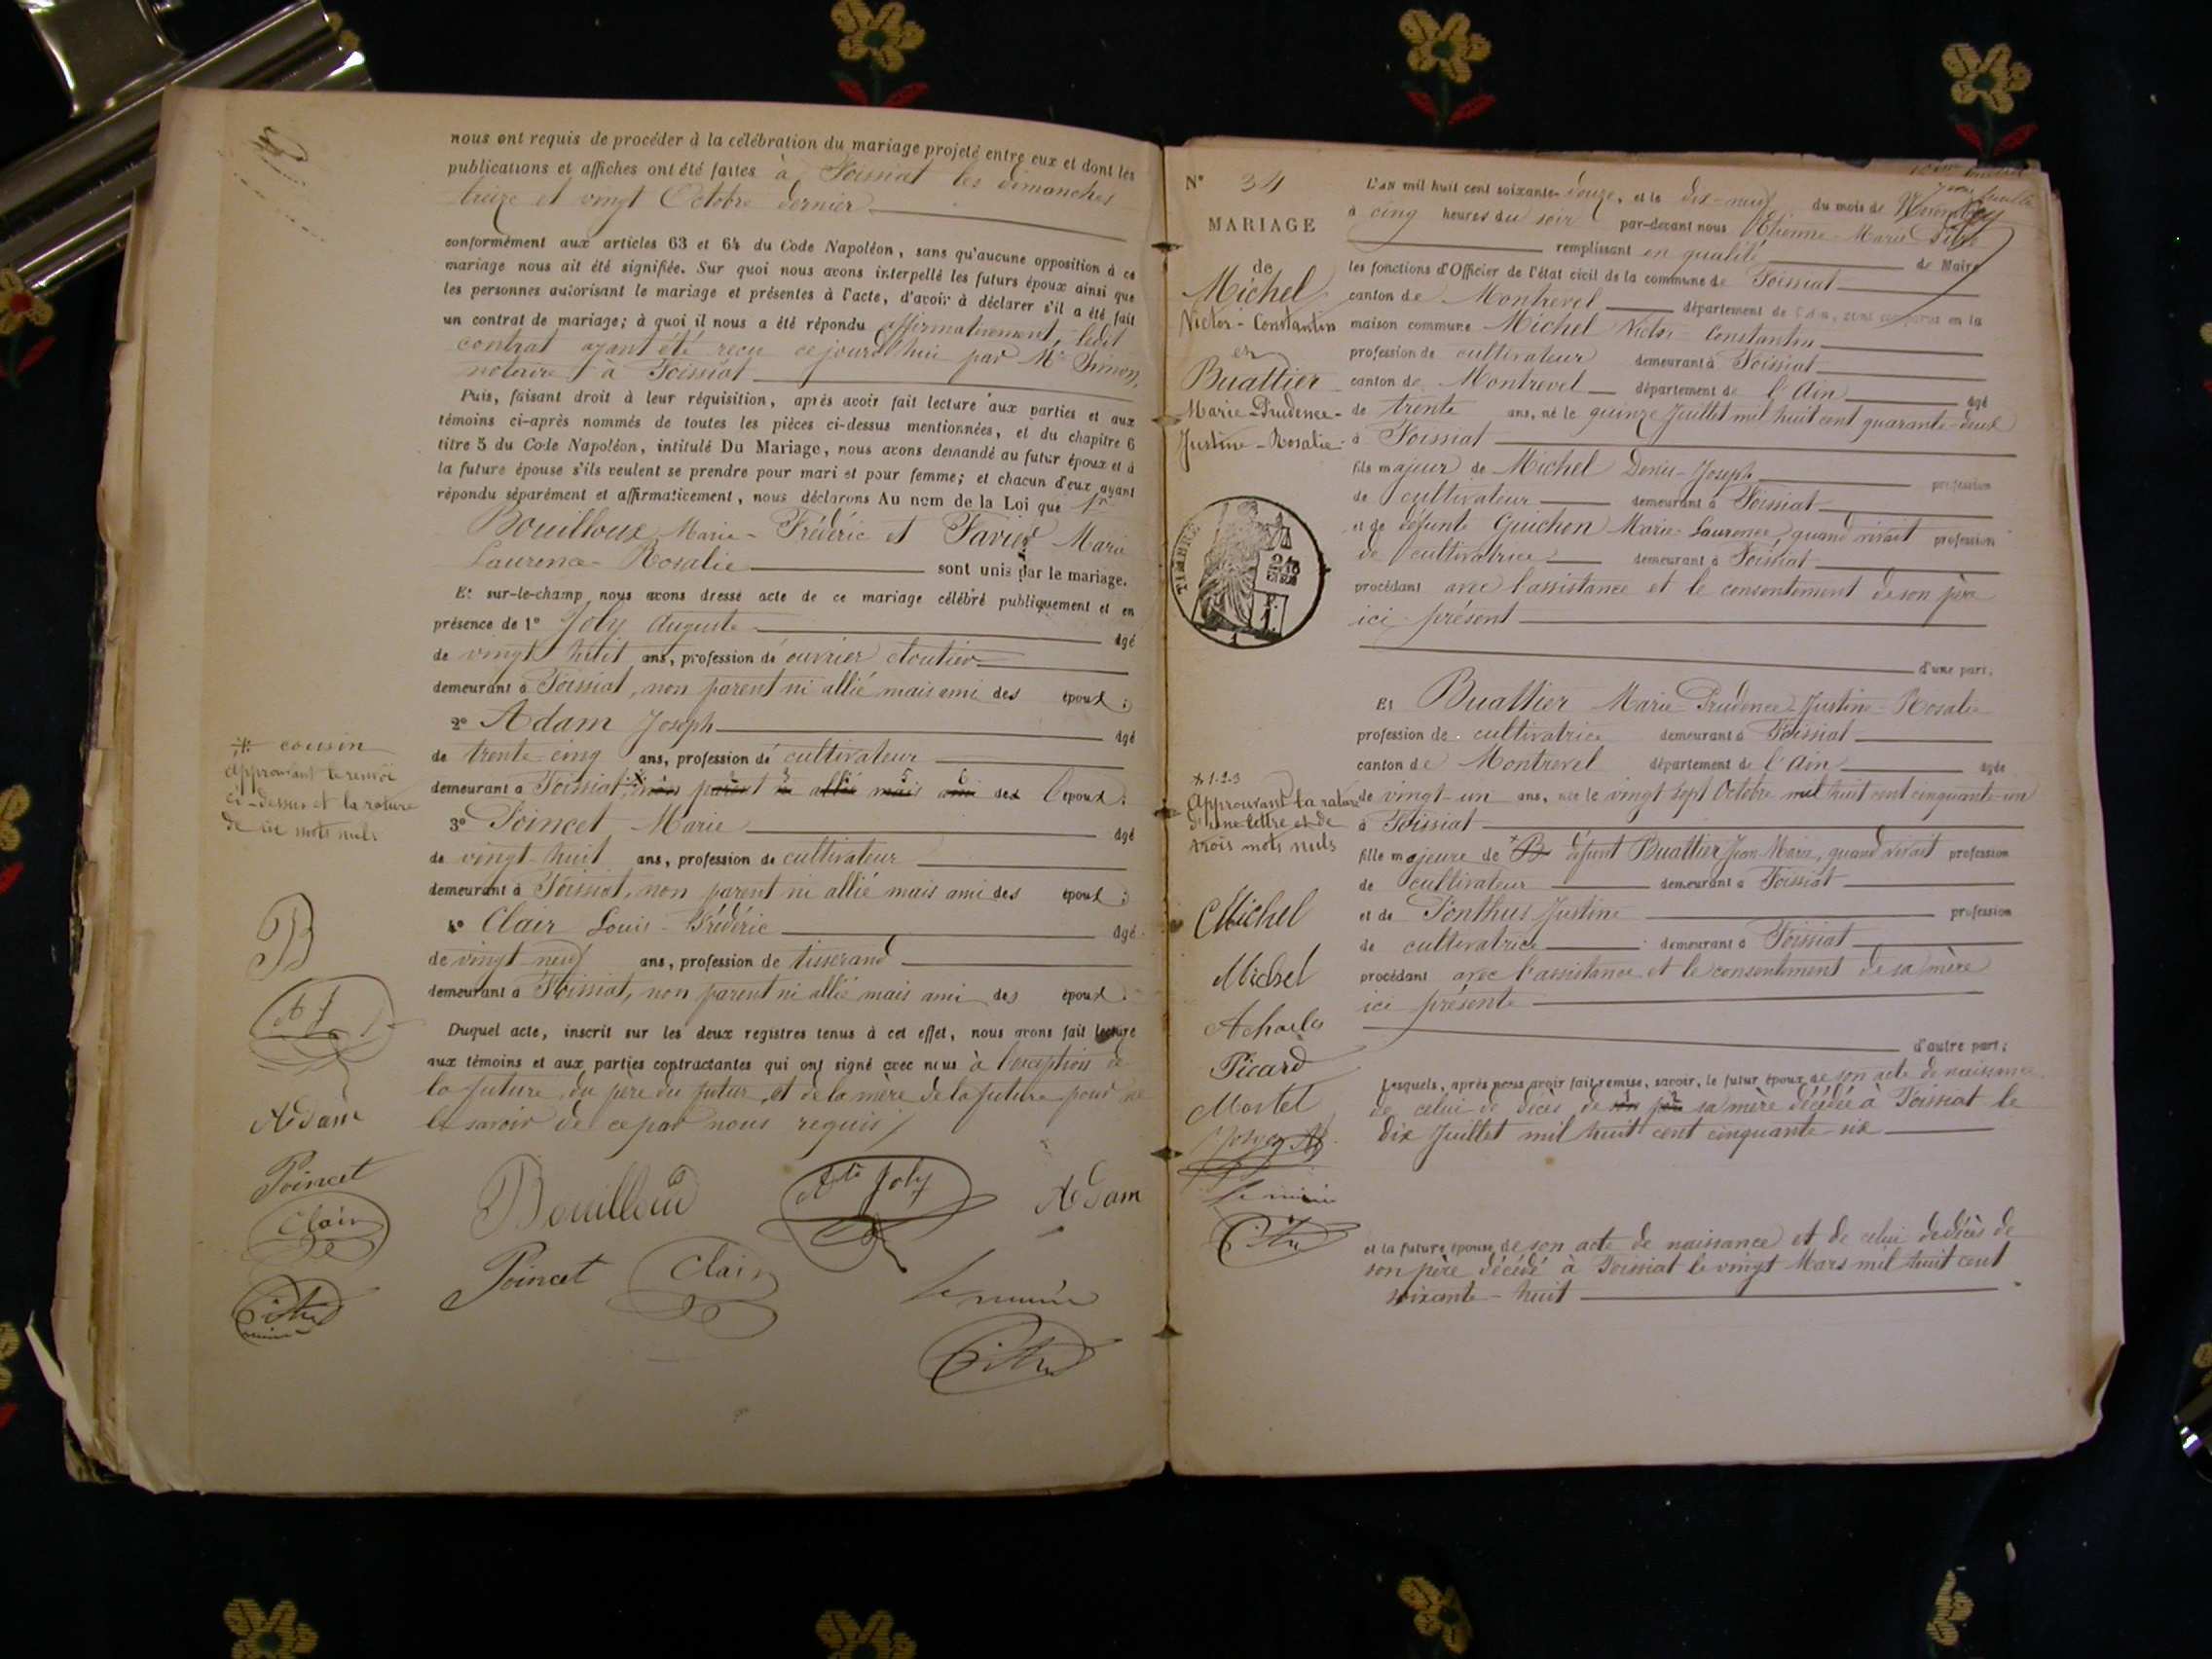 nous ont requis de procéder à la célébration du mariage projeté entre eux et dont les
publications et affiches ont été faites à Foissiat les dimanches
treize et vingt Octobre dernier
conformément aux articles 63 et 64 du Code Napoléon, sans qu'aucune opposition à ce
mariage nous ait été signifiée. Sur quoi nous avons interpellé les futurs époux ainsi que
les personnes autorisant le mariage et présentes à l'acte, d'avoir à déclarer s'il a été fait
un contrat de mariage; à quoi il nous a été répondu affirmativement, ledit
contrat ayant été reçu ce jourd'hui par Me Simon,
notaire à Foissiat
Puis, faisant droit à leur réquisition, après avoir fait lecture aux parties et aux
témoins ci-après nommés de toutes les pièces ci-dessus mentionnées, et du chapitre 6
titre 5 du Code Napoléon, intitulé Du Mariage, nous avons demandé au futur époux et à
la future épouse s'ils veulent se prendre pour mari et pour femme; et chacun d'eux ayant
répondu séparément et affirmativement, nous déclarons Au nom de la Loi que
Bouilloux Marie-Frédéric et Favier Marie
Laurence-Rosalie sont unis par le mariage.
Et sur-le-champ nous avons dressé acte de ce mariage célébré publiquement et en
présence de 1° Joly Auguste âgé
de vingt huit ans, profession de ouvrier cloutier
demeurant à Foissiat, non parent ni allié mais ami des époux;
2° Adam Joseph âgé
de trente cinq ans, profession de cultivateur
demeurant à Foissiat, non parent ni allié mais ami des l'époux;
3° Poincet Marie âgé
de vingt-huit ans, profession de cultivateur
demeurant à Foissiat, non parent ni allié mais ami des époux;
4° Clair Louis-Frédéric âgé
de vingt neuf ans, profession de tisserand
demeurant à Foissiat, non parent ni allié mais ami des époux.
Duquel acte, inscrit sur les deux registres tenus à cet effet, nous avons fait lecture
aux témoins et aux parties contractantes qui ont signé avec nous à l'exception de
la future, du père du futur, et de la mère de la future pour ne
le savoir de ce par nous requis
* cousin
Approuvant le renvoi
ci-dessus et la rature
de six mots nuls
B
AJ
Adam
Poincet
Clair
maire
Bouilloux
Ate Joly
Adam
Poincet
Clair
Le maire
N° 34
MARIAGE
de
Michel
Victor-Constantin
et
Buattier
Marie-Prudence-
Justine-Rosalie
TIMBRE
* 1.2.3
Approuvant la rature
d'une lettre et de
trois mots nuls
Michel
Michel
Acharles
Picard
Mortel
Le maire
L'an mil huit cent soixante-douze, et le dix-neuf du mois de Novembre
à cinq heures du soir par-devant nous Etienne-Marie
remplissant en qualité de Maire
les fonctions d'Officier de l'état civil de la commune de Foissiat
canton de Montrevel département de l'Ain, sont comparus en la
maison commune Michel Victor-Constantin
profession de cultivateur demeurant à Foissiat
canton de Montrevel département de l'Ain âgé
de trente ans, né le quinze Juillet mil huit cent quarante-deux
à Foissiat
fils majeur de Michel Denis-Joseph profession
de cultivateur demeurant à Foissiat
et de défunte Guichon Marie-Laurence, quand vivait profession
de cultivatrice demeurant à Foissiat
procédant avec l'assistance et le consentement de son père
ici présent
d'une part,
Et Buattier Marie-Prudence-Justine-Rosalie
profession de cultivatrice demeurant à Foissiat
canton de Montrevel département de l'Ain âgée
de vingt-un ans, née le vingt sept Octobre mil huit cent cinquante-un
à Foissiat
fille majeure de B défunt Buattier Jean-Marie, quand vivait profession
de cultivateur demeurant à Foissiat
et de Ponthus Justine profession
de cultivatrice demeurant à Foissiat
procédant avec l'assistance et le consentement de sa mère
ici présente
d'autre part;
Lesquels, après nous avoir fait remise, savoir, le futur époux de son acte de naissance
de celui de décès de son père sa mère décédée à Foissiat le
dix Juillet mil huit cent cinquante-six
et la future épouse de son acte de naissance et de celui de décès de
son père décédé à Foissiat le vingt Mars mil huit cent
soixante-huit